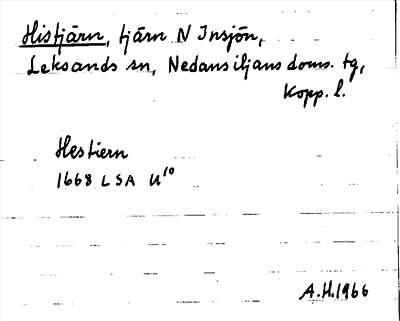 Histjärn, tjärn N Insjön,
Leksands sn, Nedansiljans doms. tg,
Kopp. l.
Hestiern
1668 LSA U¹⁰
A.H. 1966